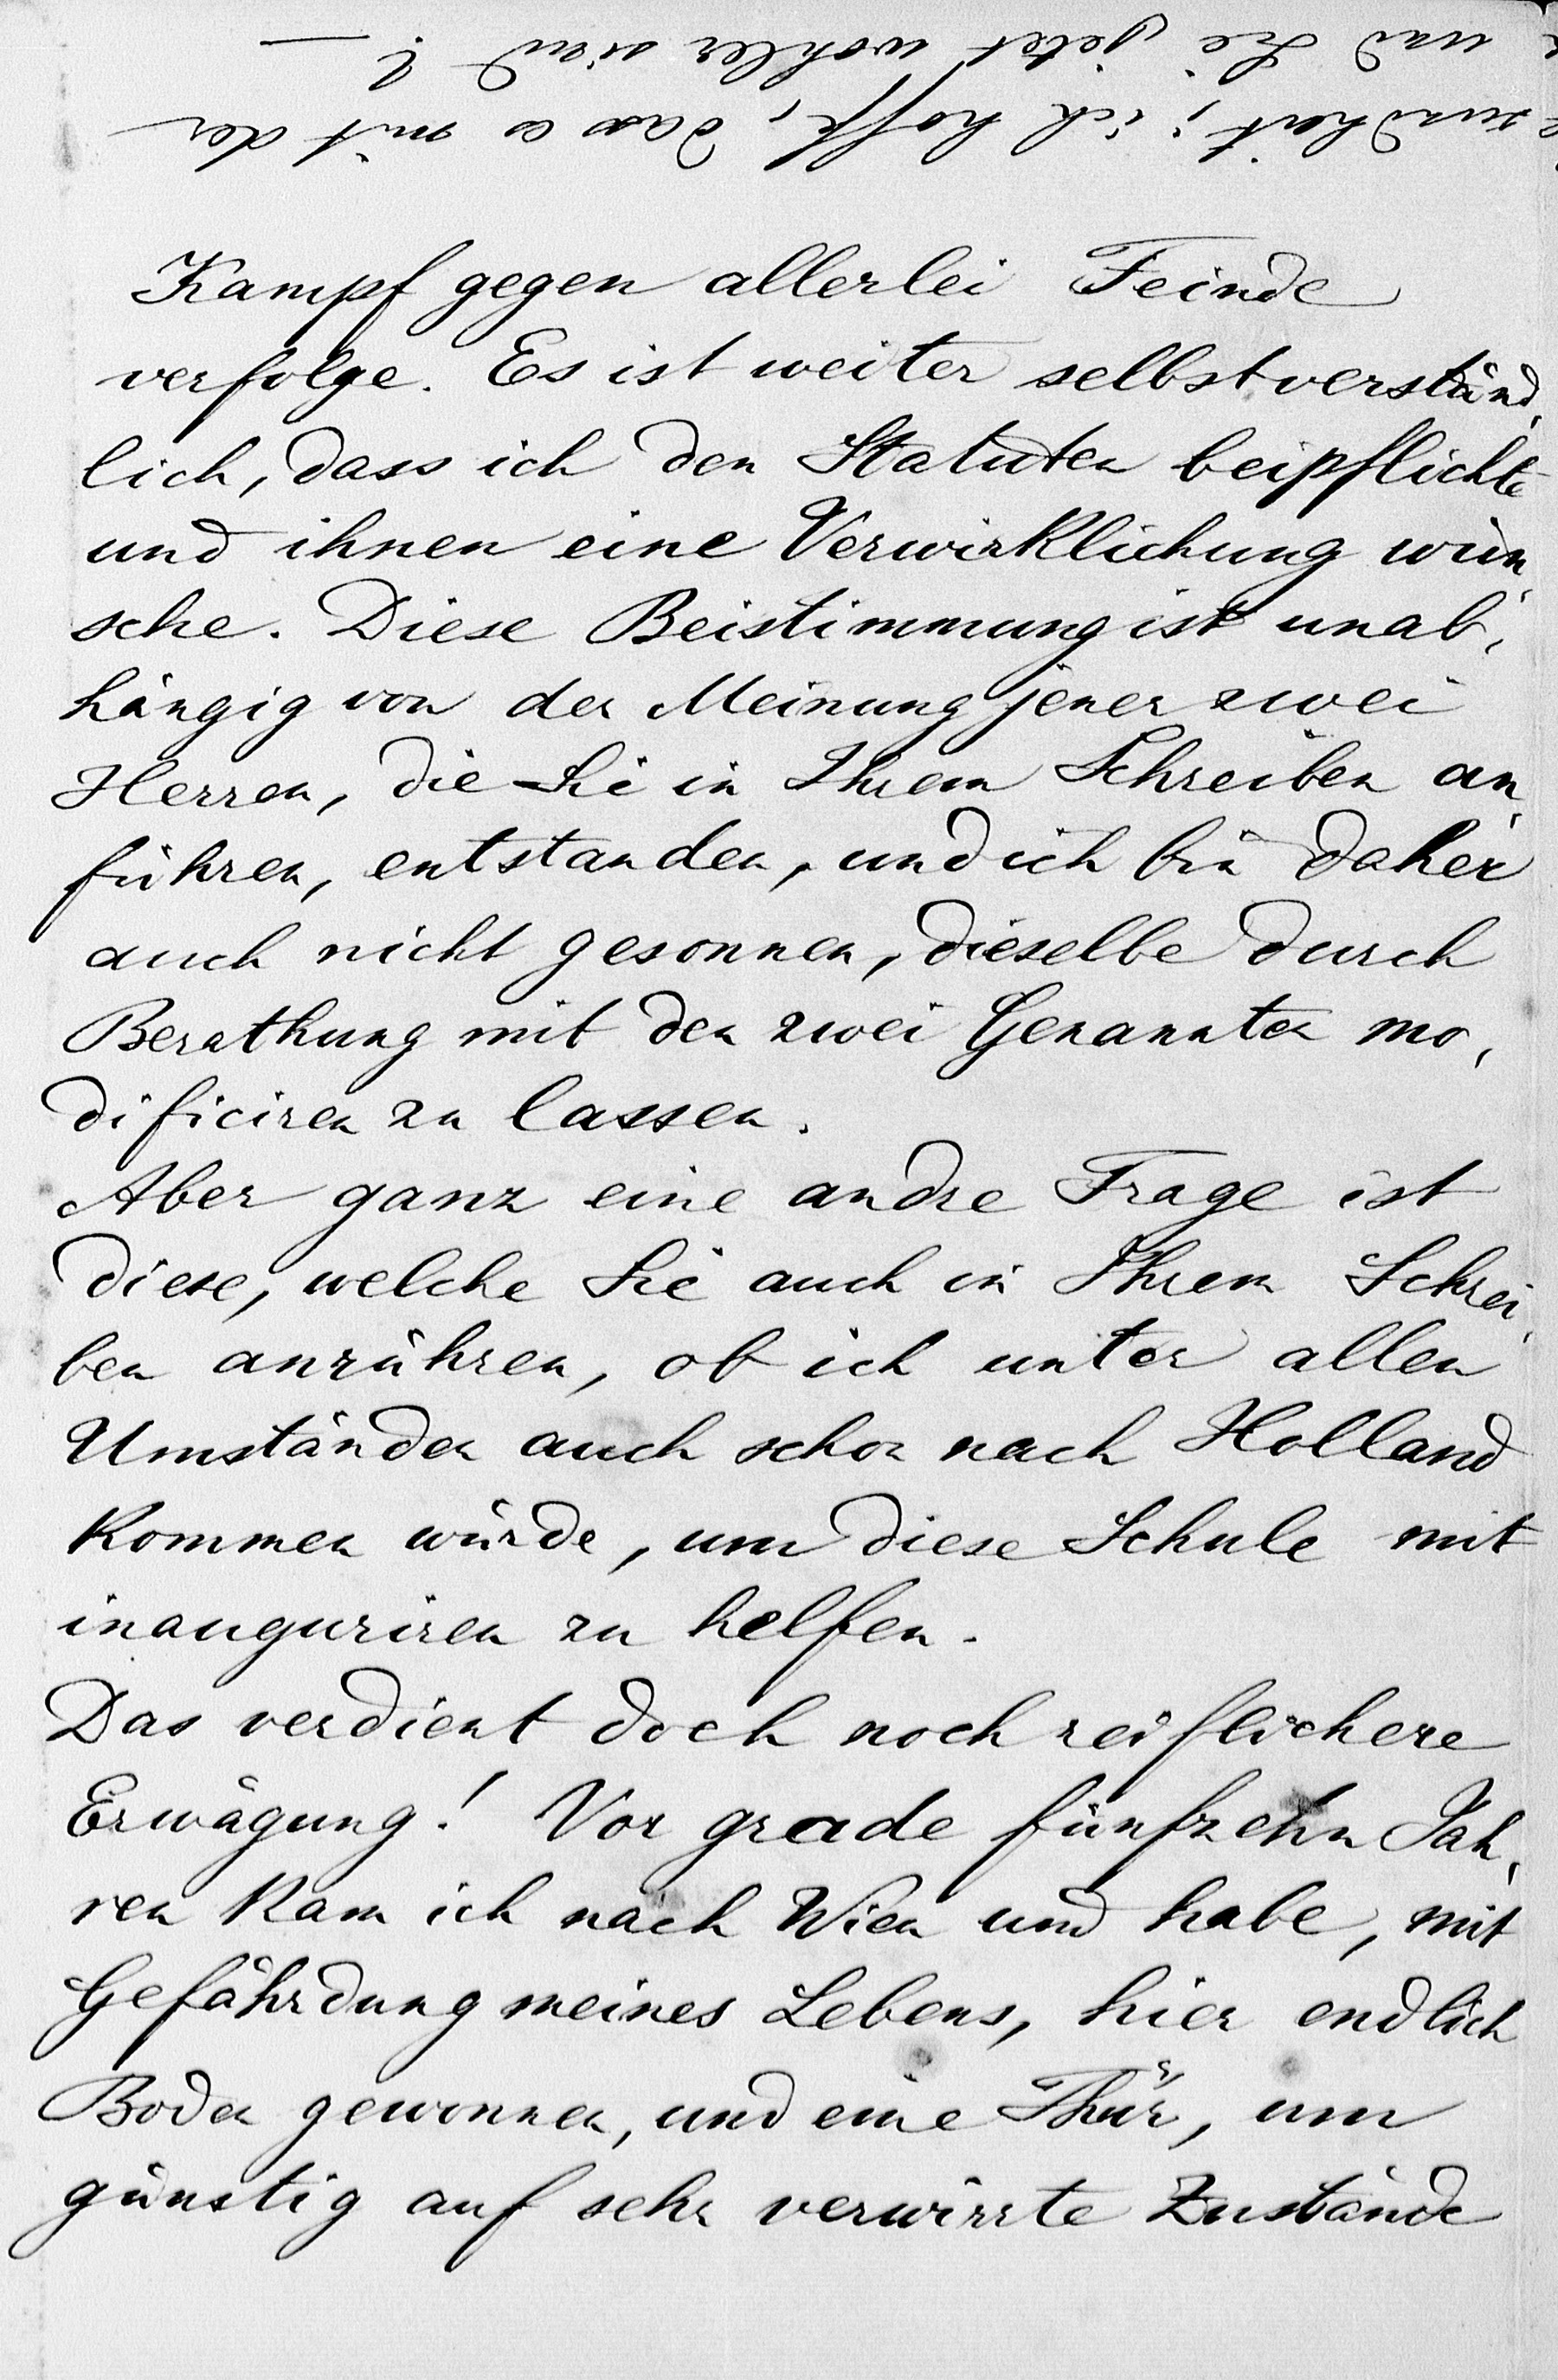 Kampf gegen allerlei Feinde
verfolge. Es ist weiter selbstverständ,
lich, dass ich den Statuten beipflichte
und ihnen eine Verwirklichung wün,
sche. Diese Beistimmung ist unab,
hängig von der Meinung jener zwei
Herren, die Sie in Ihrem Schreiben an,
führen, entstanden, und ich bin daher
auch nicht gesonnen, dieselbe durch
Berathung mit den zwei Genannten mo,
dificiren zu lassen.
Aber ganz eine andre Frage ist
diese, welche Sie auch in Ihrem Schrei,
ben anrühren, ob ich unter allen
Umständen auch schon nach Holland
kommen würde, um diese Schule mit
inauguriren zu helfen.
Das verdient doch noch reiflichere
Erwägung! Vor grade fünfzehn Jah,
ren kam ich nach Wien und habe, mit
Gefährdung meines Lebens, hier endlich
Boden gewonnen, und eine Thür, um
günstig auf sehr verwirrte Zustände
sundheit; ich hoffe, dass es mit der
und Sie jetzt wohler sind? —